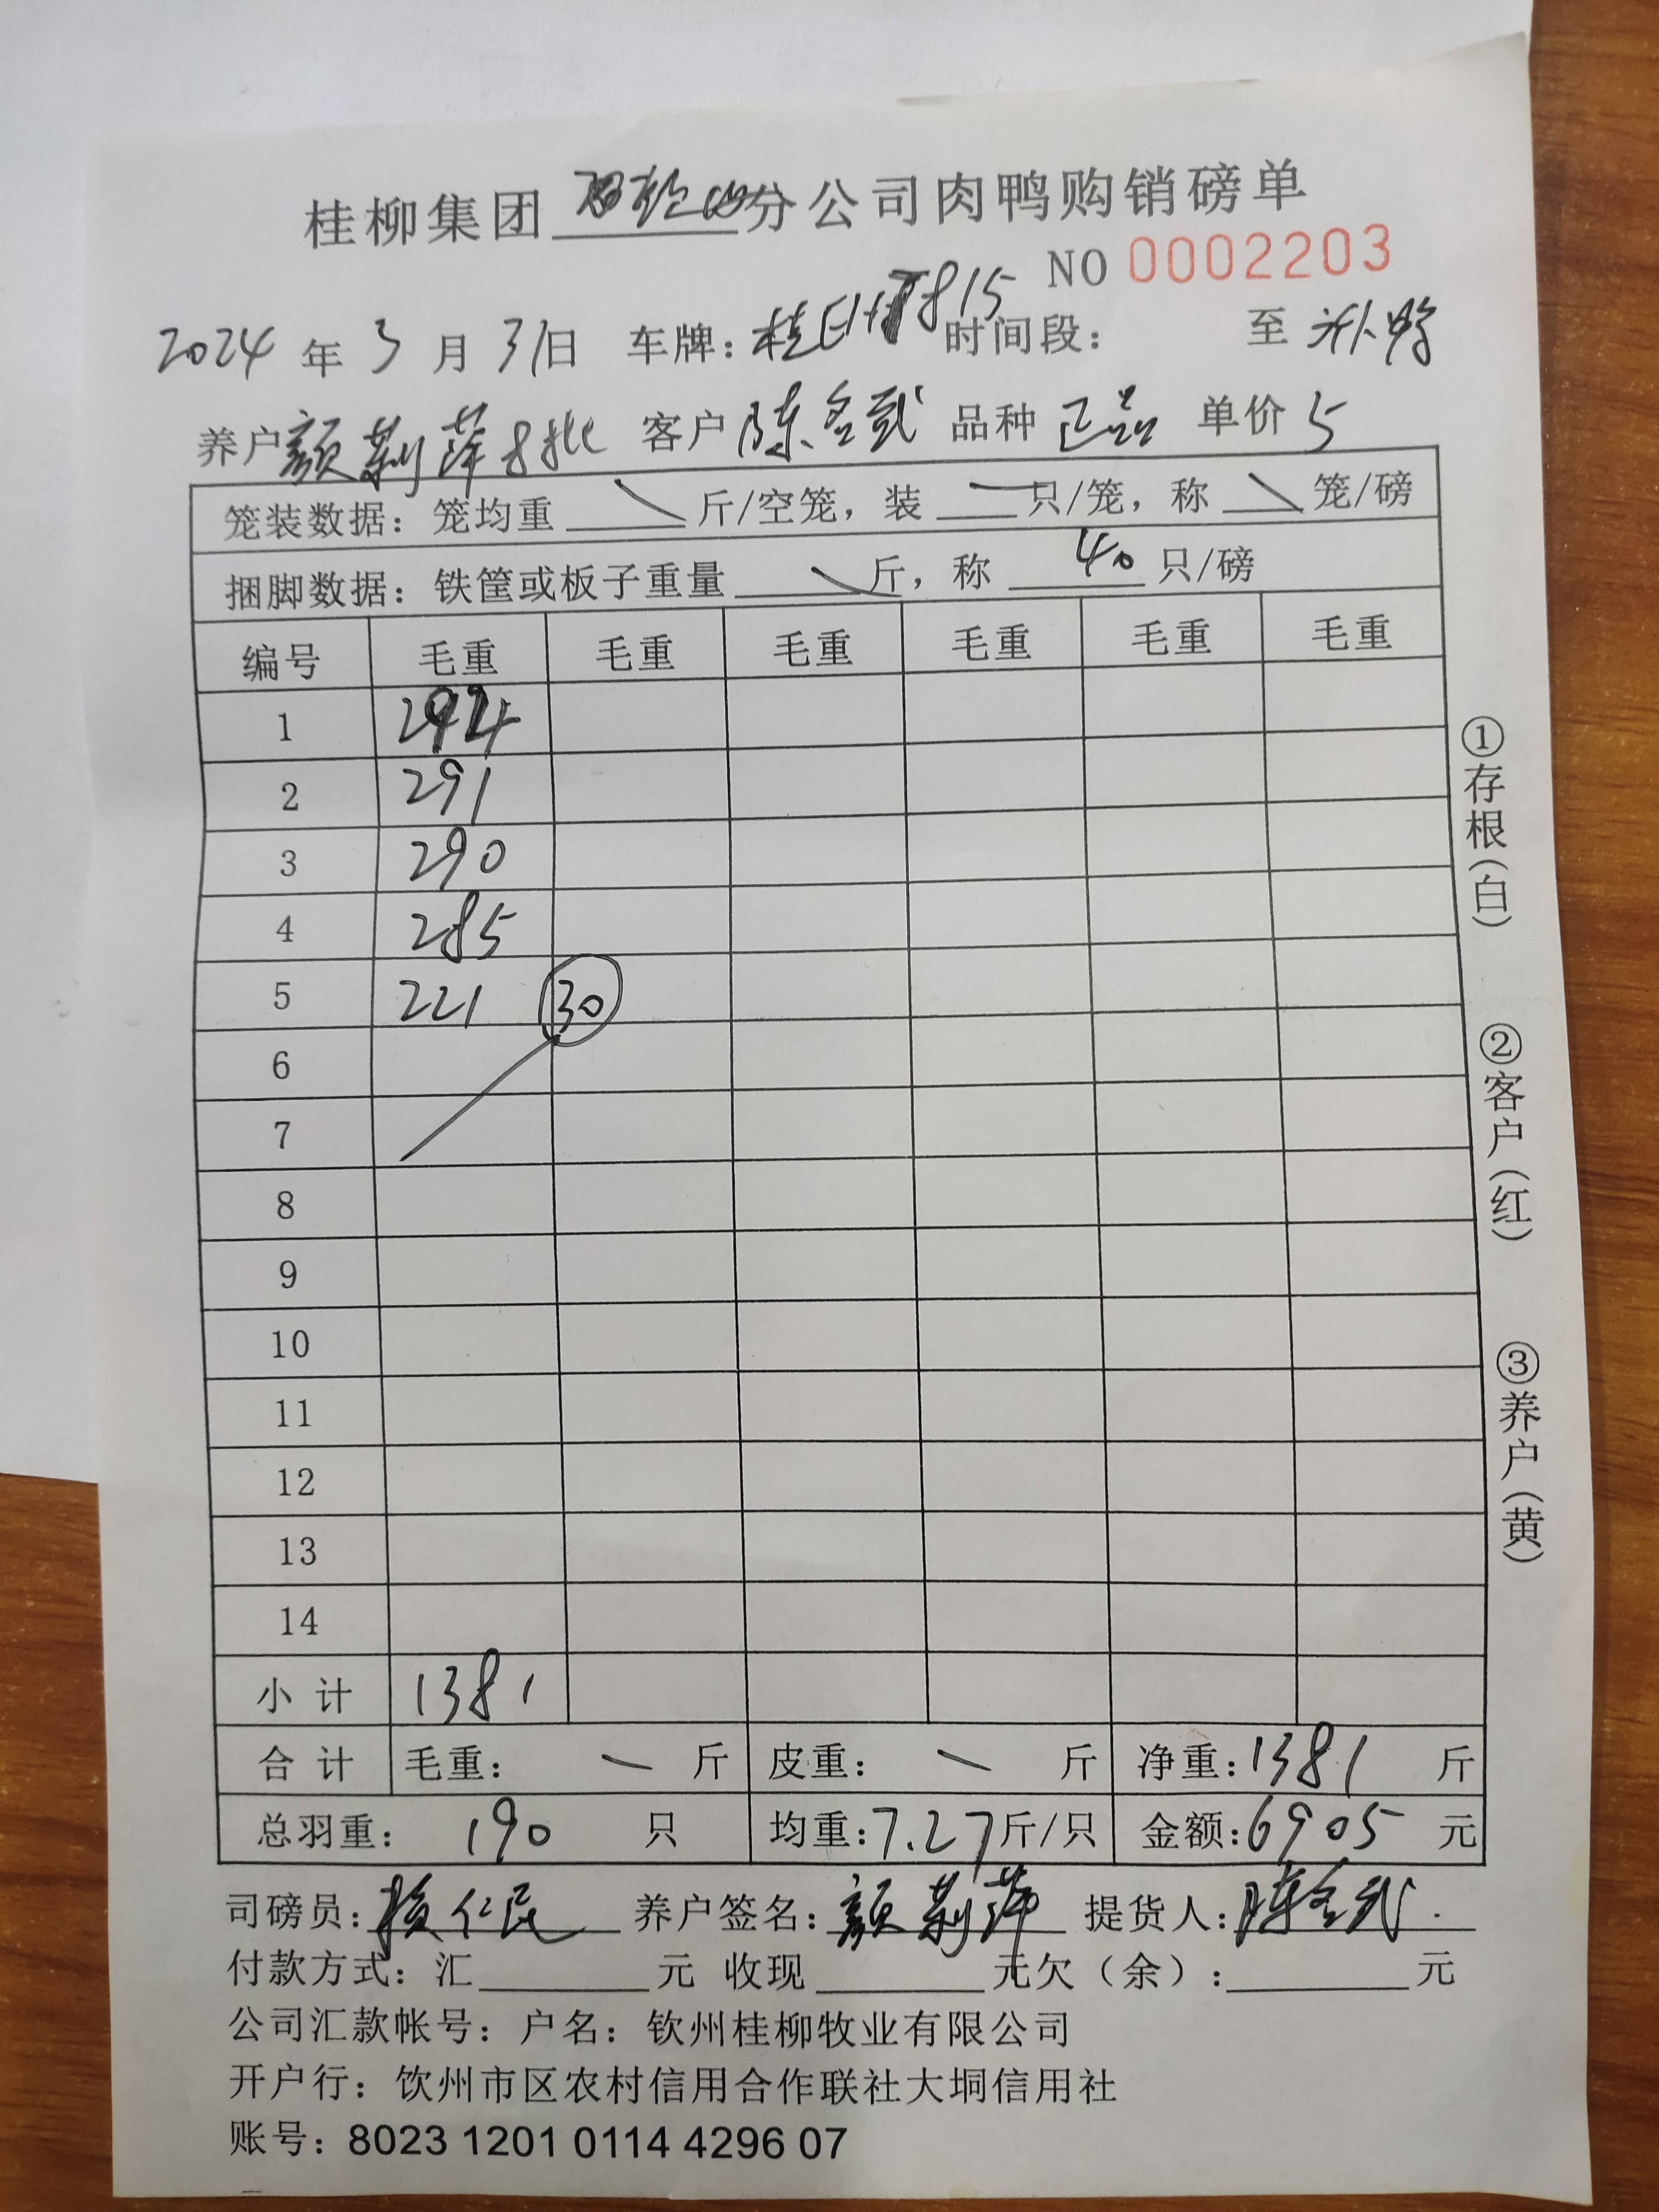 桂柳集团 分公司肉鸭购销磅单
NO 0002203
2024 年 3 月 31日 车牌：桂 815 时间段： 至 补鸭
养户 颜莉萍 批 客户 陈名武 品种 正品 单价 5
笼装数据：笼均重 斤/空笼，装 只/笼，称 笼/磅
捆脚数据：铁筐或板子重量 斤，称 40 只/磅
编号 毛重 毛重 毛重 毛重 毛重 毛重
1 294
2 291
3 290
4 285
5 221 30
6
7
8
9
10
11
12
13
14
小 计 1381
合 计 毛重： 一 斤 皮重： 一 斤 净重：1381 斤
总羽重： 190 只 均重：7.27斤/只 金额：6905 元
司磅员： 仁民 养户签名：颜莉萍 提货人：陈名武
付款方式：汇 元 收现 元欠（余）： 元
公司汇款帐号：户名：钦州桂柳牧业有限公司
开户行：钦州市区农村信用合作联社大垌信用社
账号：8023 1201 0114 4296 07
①存根（白）
②客户（红）
③养户（黄）